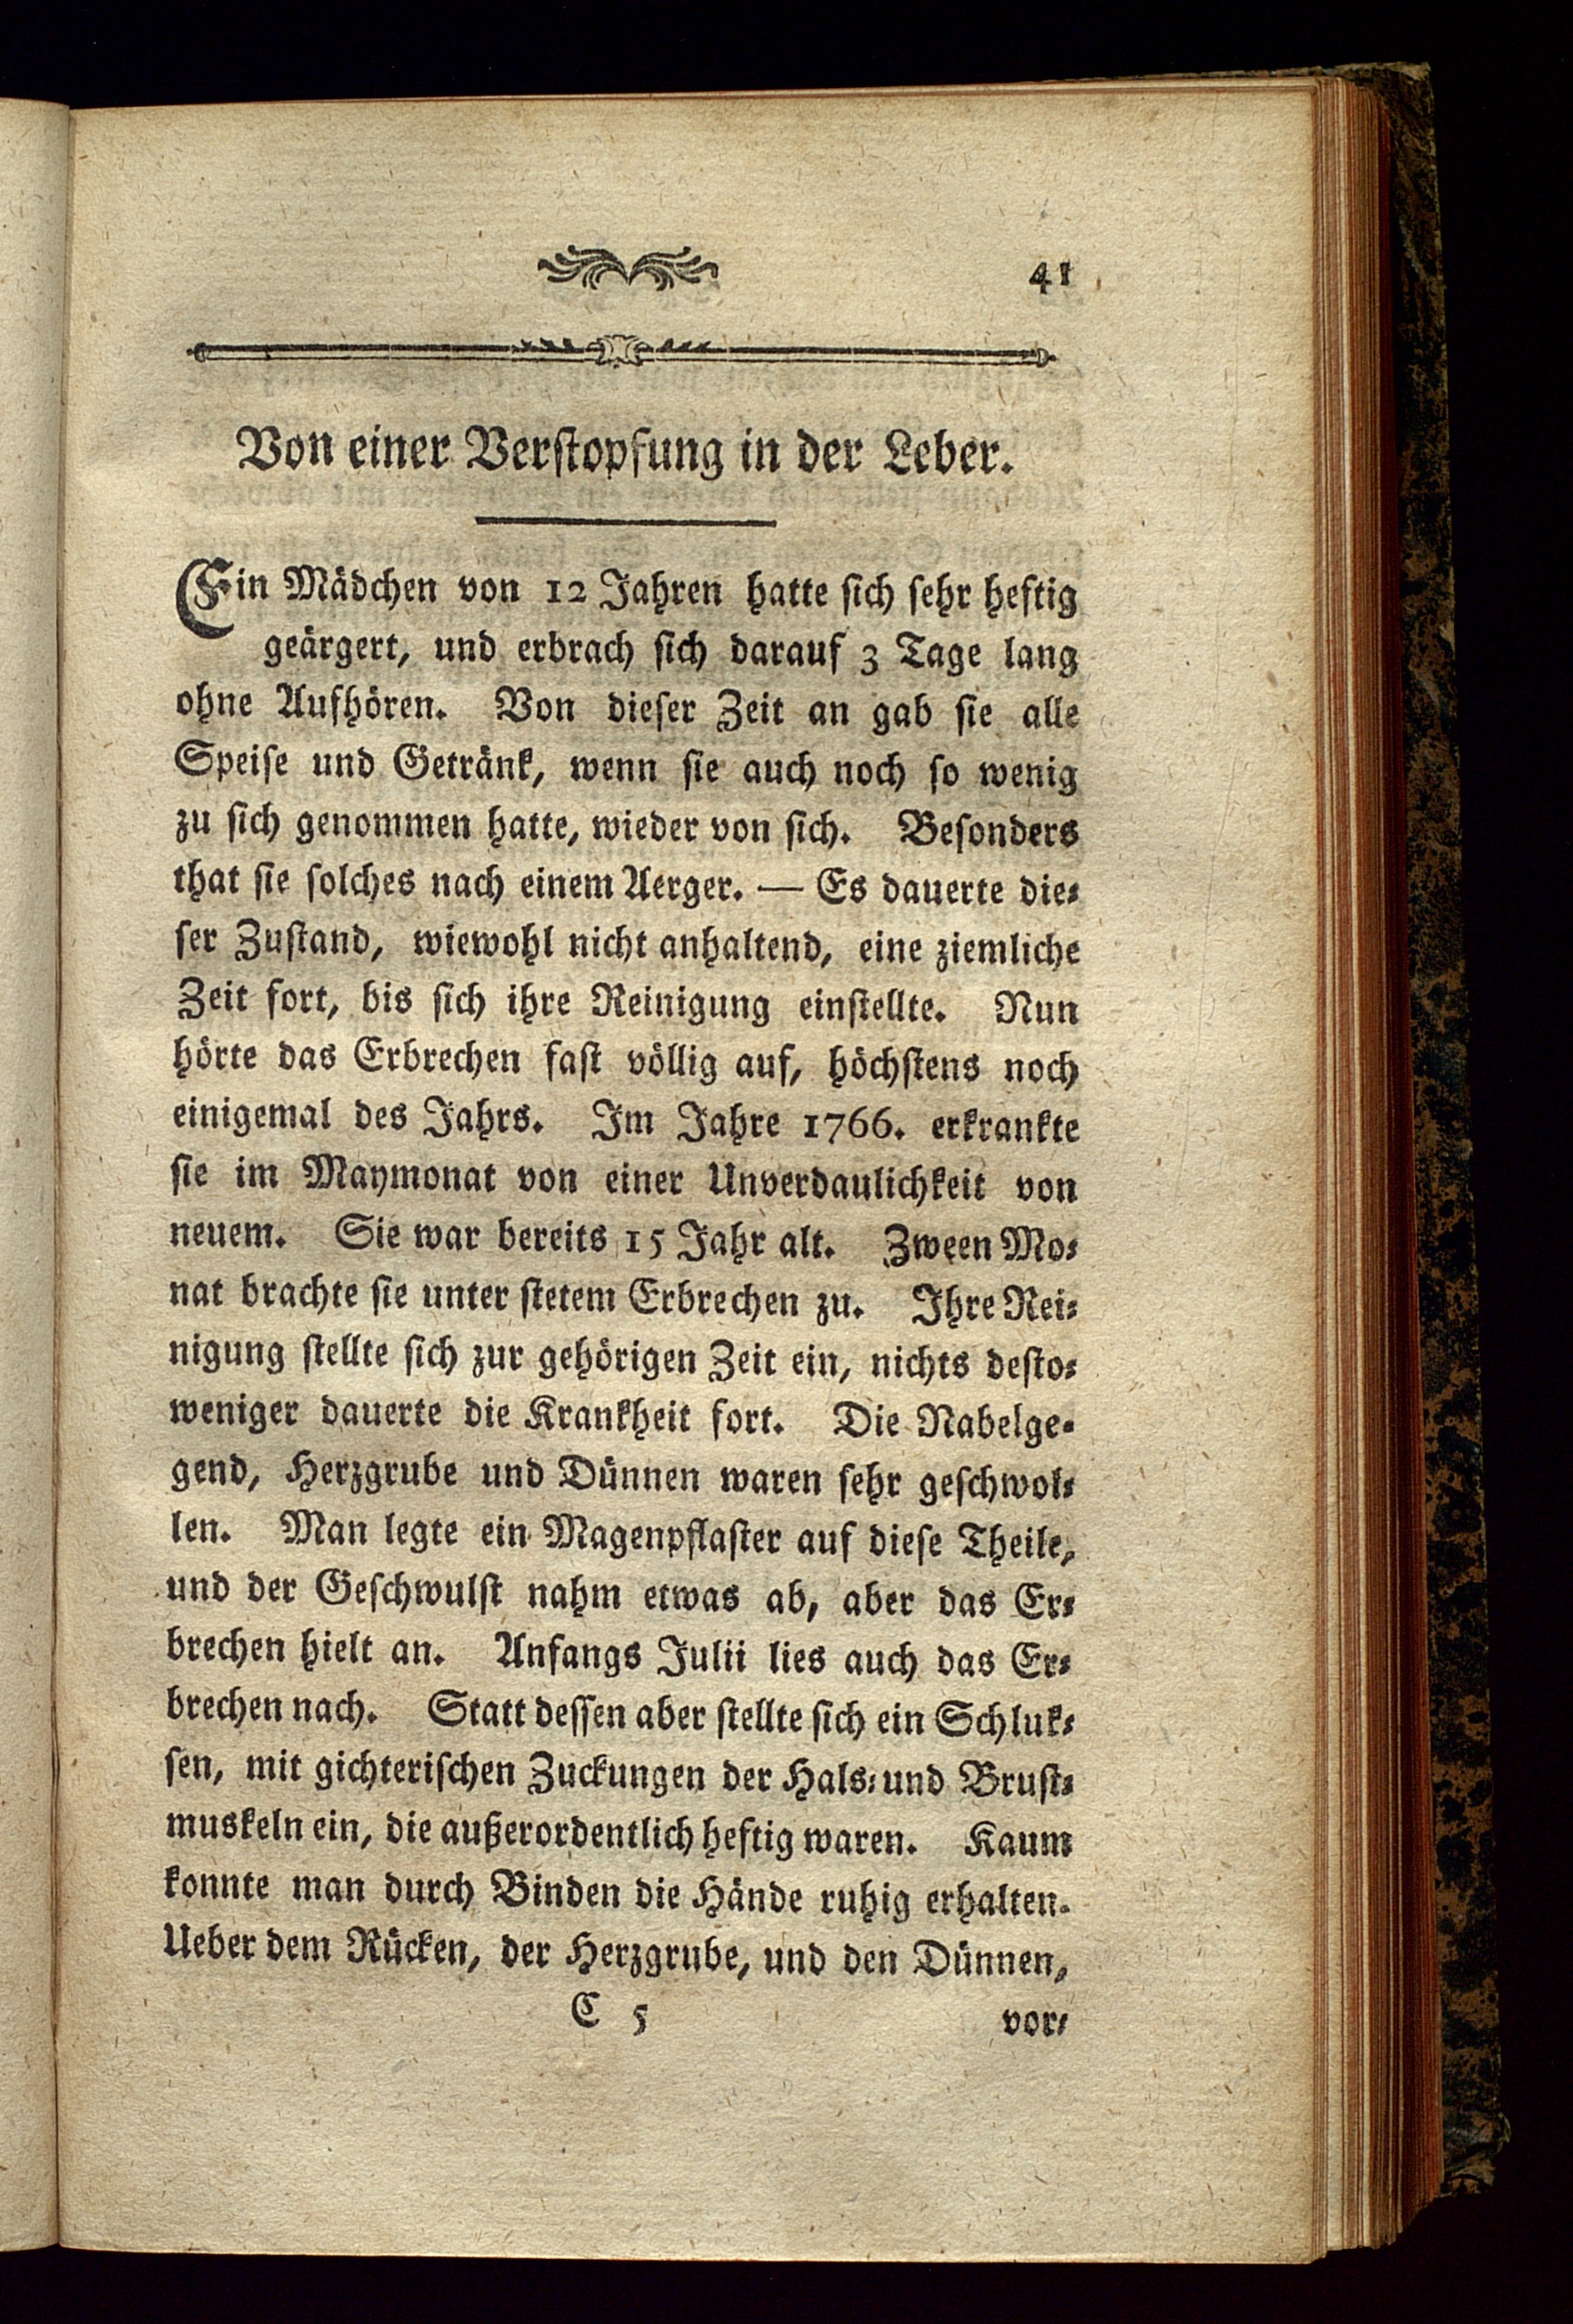 41
Von einer Verstopfung in der Leber.
Ein Mädchen von 12 Jahren hatte sich sehr heftig
geärgert, und erbrach sich darauf 3 Tage lang
ohne Aufhören. Von dieser Zeit an gab sie alle
Speise und Getränk, wenn sie auch noch so wenig
zu sich genommen hatte, wieder von sich. Besonders
that sie solches nach einem Aerger. — Es dauerte die-
ser Zustand, wiewohl nicht anhaltend, eine ziemliche
Zeit fort, bis sich ihre Reinigung einstellte. Nun
hörte das Erbrechen fast völlig auf, höchstens noch
einigemal des Jahrs. Im Jahre 1766. erkrankte
sie im Maymonat von einer Unverdaulichkeit von
neuem. Sie war bereits 15 Jahr alt. Zween Mo-
nat brachte sie unter stetem Erbrechen zu. Ihre Rei-
nigung stellte sich zur gehörigen Zeit ein, nichts desto-
weniger dauerte die Krankheit fort. Die Nabelge-
gend, Herzgrube und Dünnen waren sehr geschwol-
len. Man legte ein Magenpflaster auf diese Theile,
und der Geschwulst nahm etwas ab, aber das Er-
brechen hielt an. Anfangs Julii lies auch das Er-
brechen nach. Statt dessen aber stellte sich ein Schluk-
sen, mit gichterischen Zuckungen der Hals- und Brust-
muskeln ein, die außerordentlich heftig waren. Kaum
konnte man durch Binden die Hände ruhig erhalten.
Ueber dem Rücken, der Herzgrube, und den Dünnen,
C 5 vor-